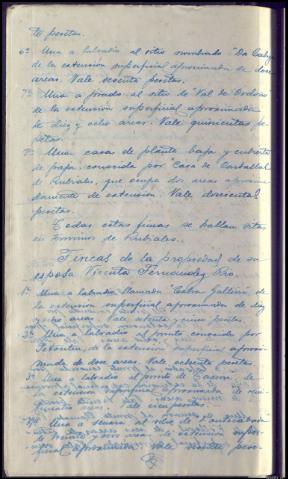 te pesetas.
6º Una a labradío al sitio nombrado "Da
de la extensión superficial aproximada de doce
areas. Vale sesenta pesetas.
7º Una a prado al sitio de "Val de
de la extensión superficial aproximada
de diez y ocho areas. Vale quinientas pe-
setas.
8º Una casa de planta baja y cubierta
de paja, conocida por Casa de Carballal
de Rubiales, que ocupa dos areas aproxi-
madamente de extensión. Vale doscientas
pesetas.
Todas estas fincas se hallan sitas
en términos de Rubiales.
Fincas de la propiedad de su
esposa Vicenta Fernandez Rio.
1ª Una a labradío llamada de
la extensión superficial aproximada de diez
y ocho areas. Vale pesetas.
2ª Una a labradío al punto conocido por
de la extensión superficial aproxi-
mada de doce areas. Vale ochenta pesetas.
3ª Una a labradío al punto de
la extensión superficial aproximada de
areas. Vale pesetas.
4ª Una a al sitio de
de areas de extensión super-
ficial aproximada. Vale